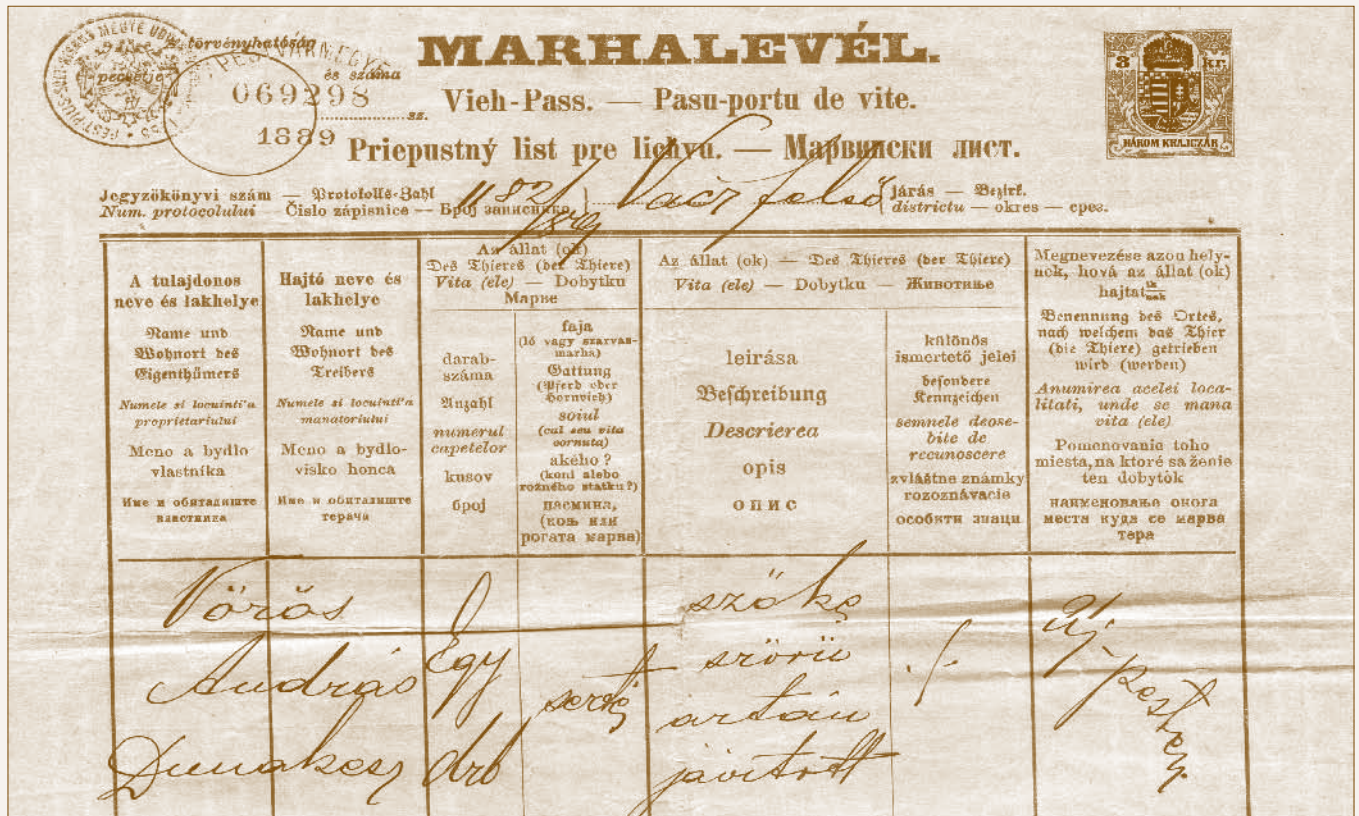 MARHALEVÉL.
törvényhatóság
pecsétje
és száma
069298
sz.
1889
3 kr.
HÁROM KRAJCZÁR
Vieh-Pass. — Pasu-portu de vite.
Priepustný list pre lichvu. — Марвински лист.
Jegyzökönyvi szám — Protokolls-Zahl
Num. protocolului — Čislo zápisnice — Број записника
1182/889
Váczi felső
járás — Bezirk.
districtu — okres — срез.
A tulajdonos
neve és lakhelye
Name und
Wohnort des
Eigenthümers
Numele si locuinti'a
proprietariului
Meno a bydlo
vlastníka
Име и обиталиште
властника
Hajtó neve és
lakhelye
Name und
Wohnort des
Treibers
Numele si locuinti'a
manatoriului
Meno a bydlo-
visko honca
Име и обиталиште
терача
Az állat (ok)
Des Thieres (der Thiere)
Vita (ele) — Dobytku
Марве
darab-
száma
Anzahl
numerul
capetelor
kusov
број
faja
(ló vagy szarvas-
marha)
Gattung
(Pferd oder
Hornvieh)
soiul
(cal seu vita
cornuta)
akého ?
(koni alebo
rožného statku?)
пасмина,
(коњ или
рогата марва)
Az állat (ok) — Des Thieres (der Thiere)
Vita (ele) — Dobytku — Животиње
leirása
Beschreibung
Descrierea
opis
опис
különös
ismertető jelei
besondere
Kennzeichen
semnele deose-
bite de
recunoscere
zvláštne známky
rozoznávacie
особити знаци
Megnevezése azon hely-
nek, hová az állat (ok)
hajtat
Benennung des Ortes,
nach welchem das Thier
(die Thiere) getrieben
wird (werden)
Anumirea acelei loca-
litati, unde se mana
vita (ele)
Pomenovania toho
miesta, na ktoré sa ženie
ten dobytök
наименовање онога
места куда се марва
тера
Vörös
András
Dunakesz
Egy
drb
sertés
szőke
szőrü
ártány
javitott
./.
Új-
pestre